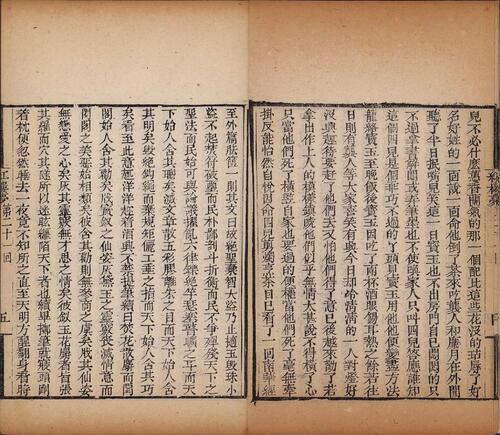 兒不必什麽蕙香蘭氣的那一個配比這些花沒的玷辱了好
名好姓的一面說一面命他倒了茶來吃襲人和麝月在外間
聽了半日抿嘴兒笑這一日寶玉也不出房門自己悶悶的只
不過拿書解悶或弄筆墨也不使喚眾人只叫四兒答應誰知
這個四兒是個乖巧不過的丫頭見寶玉用他他便變盡方法
籠絡寶玉至晚飯後寶玉因吃了兩杯酒眼餳耳熱之餘若往
日則有襲人等大家喜笑有興今日却冷清清的一人對燈好
沒興趣待要趕了他們去又怕他們得了意已後越來勸了若
拿出作上人的光景鎮唬他們似乎又太無情了說不得橫了心
只當他們死了橫豎自家也要過的便權當他們死了毫無牽
掛反能怡然自悅因命四兒剪燭烹茶自己看了一回南華經
紅樓夢
至外篇胠篋一則其文曰故絕聖棄智大盜乃止擿玉毀珠小
盜不起焚符破璽而民朴鄙剖斗折衡而民不爭殫殘天下之
聖法而民始可與論議擢亂六律鑠絕竽瑟塞瞽曠之耳而天
下始人含其聰矣滅文章散五彩膠離朱之目而天下始人含
其明矣毀絕鈎繩而棄規矩攦工倕之指而天下始人含其巧
矣看至此意趣洋洋趁着酒興不禁提筆續曰焚花散麝而閨
閣始人含其勸矣戕寶釵之仙姿灰黛玉之靈竅喪滅情意而
閨閣之美惡始相類矣彼含其勸則無參商之虞矣戕其仙姿
無戀愛之心矣灰其靈竅無才思之情矣彼釵玉花麝者皆張
其羅而穴其隧所以迷眩纏陷天下者也續畢擲筆就寢頭剛
着枕便忽然睡去一夜竟不知所之直至天明方醒翻身看時
紅樓夢 第二十一回 五